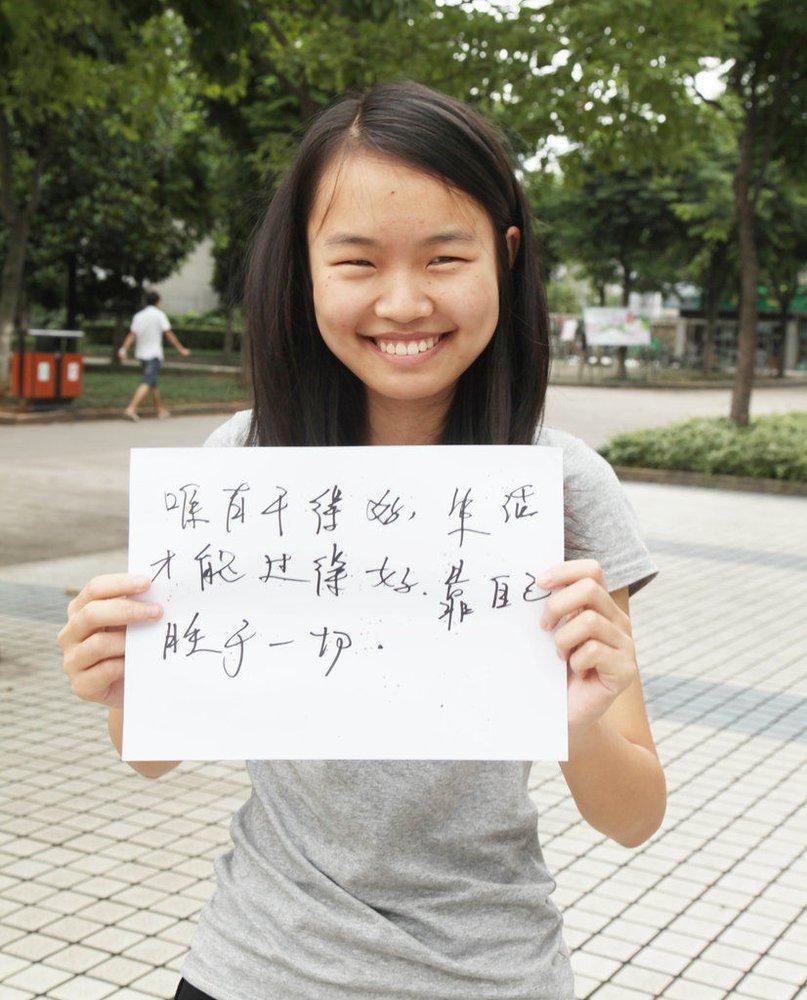 唯有干得好,生活
才能过得好.靠自己
胜于一切.